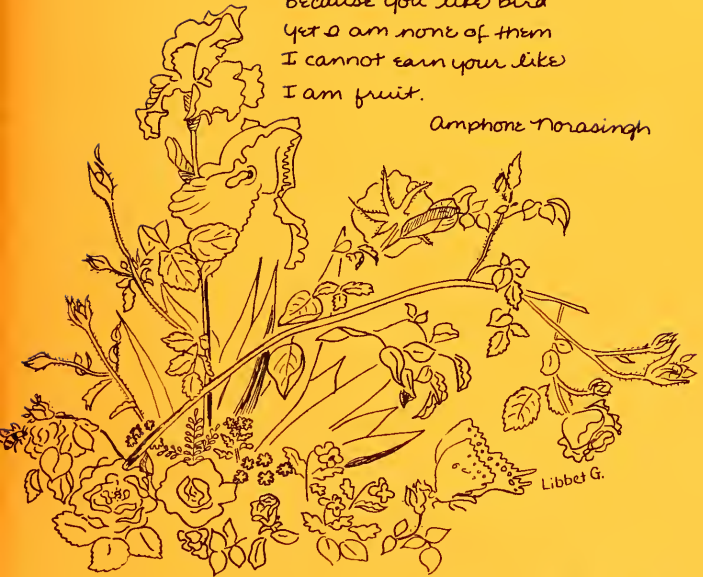 because you like bird
yet I am none of them
I cannot earn your like
I am fruit.
Amphone Norasingh
Libbet G.